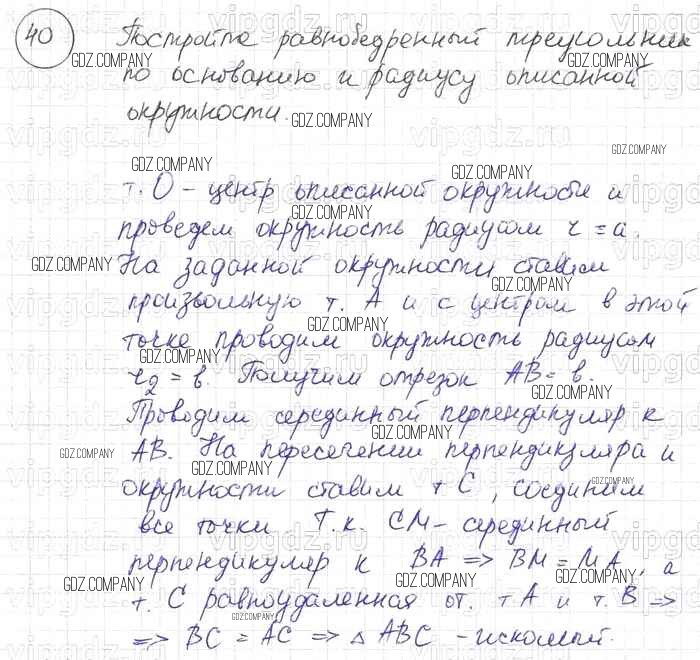 40 Постройте равнобедренный треугольник
по основанию и радиусу описанной
окружности.
т. О - центр описанной окружности и
проведем окружность радиусом r = a.
На заданной окружности ставим
произвольную т. А и с центром в этой
точке проводим окружность радиусом
r2 = в. Получим отрезок АВ = в.
Проводим серединный перпендикуляр к
АВ. На пересечении перпендикуляра и
окружности ставим т С, соединям
все точки. Т.к. СМ - серединный
перпендикуляр к ВА => ВМ = МА, а
т. С равноудаленная от. т А и т. В =>
=> ВС = АС => △ АВС - искомый.
GDZ.COMPANY
vipgdz.ru